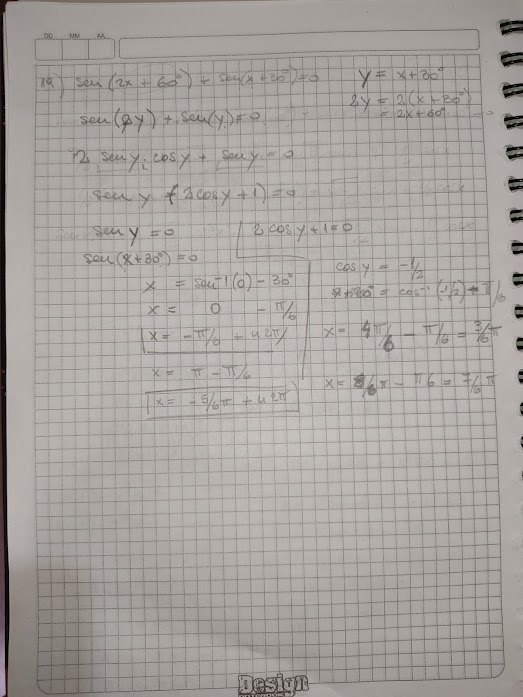 DD MM AA
19) sen(2x + 60°) + sen(x+30°)=0
y = x+30°
2y = 2(x+30°)
= 2x+60°
sen(2y) + sen(y)=0
2 sen y cos y + sen y = 0
sen y (2cos y + 1)=0
sen y =0
2 cos y + 1=0
sen(x+30°) =0
x = sen⁻¹(0) - 30°
x = 0 - π/6
x = -π/6 + n2π
x = π - π/6
x = - 5/6π + n2π
cos y = -1/2
= cos⁻¹(-1/2)
x= 4π/6 - π/6 = 3/6π
x= 8/6π - π/6 = 7/6π
Design